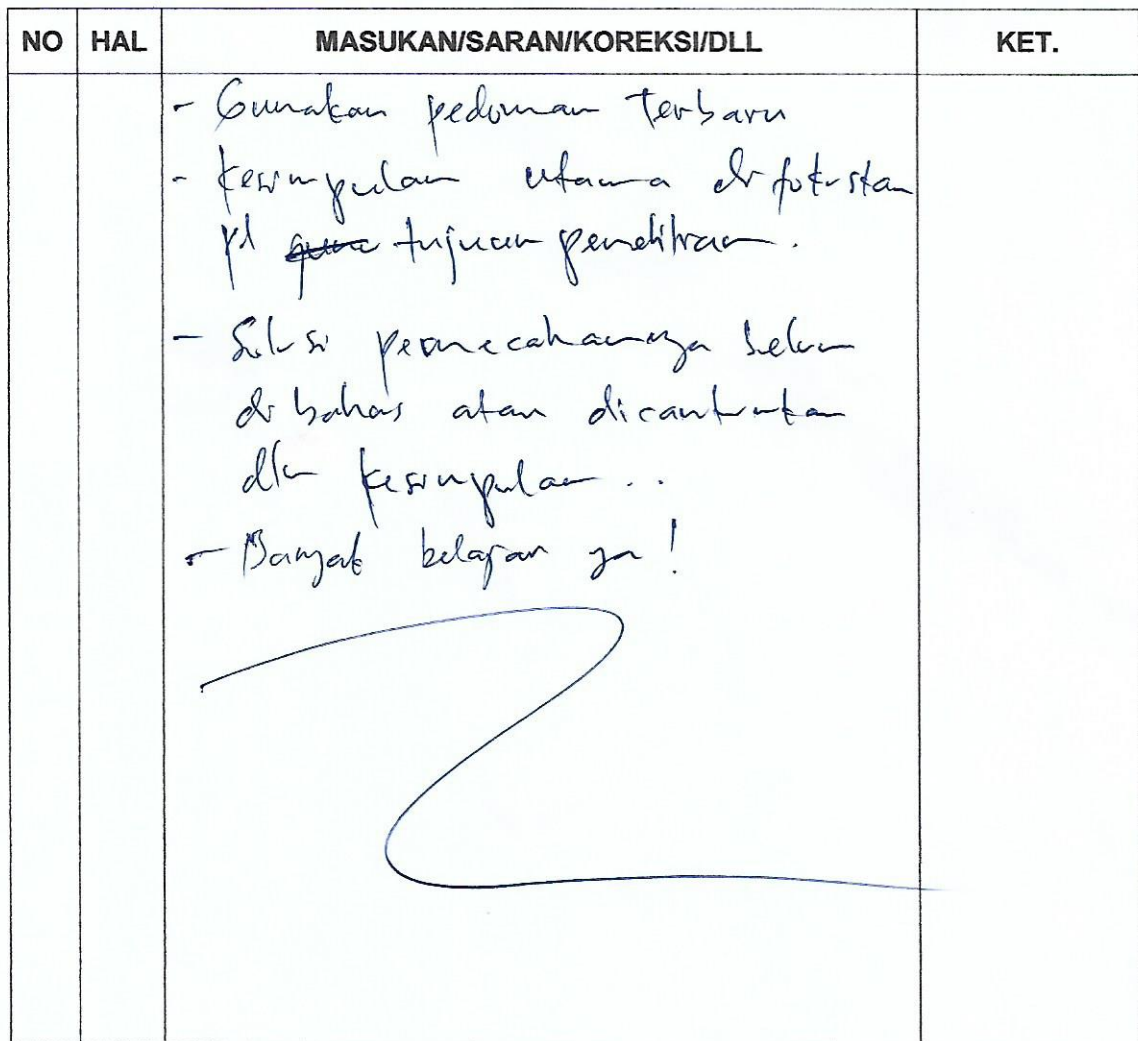 NO HAL MASUKAN/SARAN/KOREKSI/DLL KET.
- Gunakan pedoman terbaru
- Kesimpulan utama difokuskan
pd tujuan penelitian.
- Solusi pemecahannya belum
dibahas atau dicantumkan
dlm kesimpulan ..
- Banyak belajar ya!